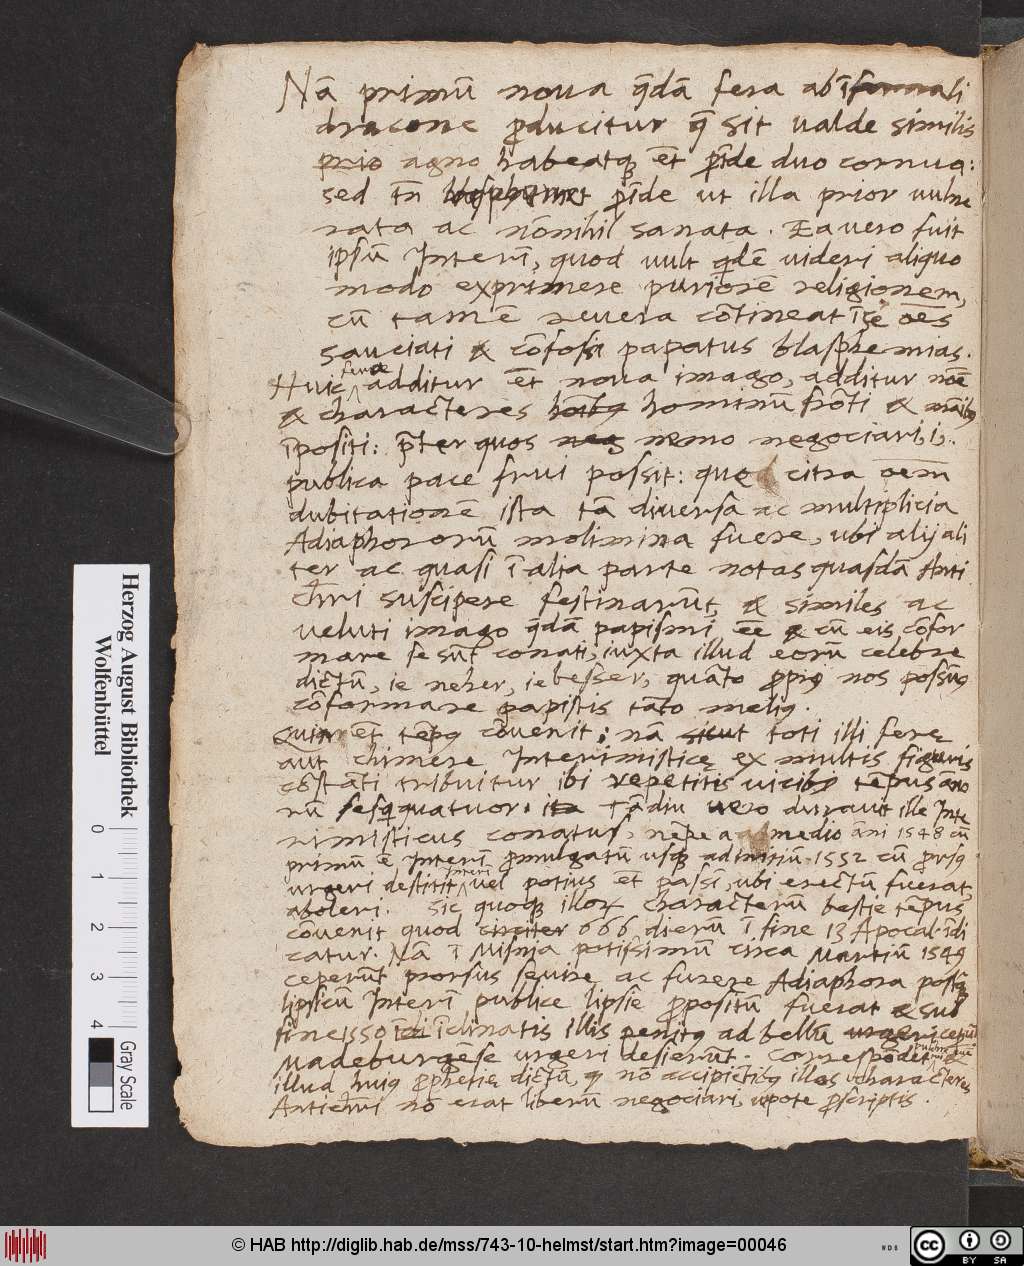 Nā primū noua q̄dā fera ab īfernali
dracone ꝓducitur q̄ sit ualde similis
prio agno habeatqꝫ ēt ꝑīde duo cornua:
sed tn̄ ꝑīde ut illa prior uulne
rata ac nōnihil sanata. Ea uero fuit
ipsū Interī, quod uult q̄dē uideri aliquo
modo exprimere puriorē religionem,
cū tamē reuera cōtineat ī se oēs
sauciati & cōfossi papatus blasphemias.
Huic ferae additur ēt noua imago, additur noē
& characteres hominū frōti & māibꝫ
īpositi: p̄ter quos nemo negociari, i,.
publica pace frui possit: quod citra oēm
dubitationē ista tā diuersa ac multiplicia
Adiaphororū molimina fuere, ubi alij ali
ter ac quasi ī alia parte notas quasdā Anti
chri suscipere festinarūt, & similes ac
ueluti imago q̄dā papismi ēē & cū eis cōfor
mare se sūt conati, iuxta illud eorū celebre
dictū, ie neher, ie besser, quāto ꝓpiꝰ nos possūꝰ
cōformare papistis tāto meliꝰ.
ēt tēpꝰ cōuenit: nā toti illi ferę
aut chimere Interimisticę ex multis figuris
cōstāti tribuitur ibi repetitis uicibꝫ tēpus āno
rū sesqꝫquatuor. Tādiu uero durauit ille Inte
rimisticus conatus, nēpe a medio āni 1548 cū
primū ē Interī ꝓmulgatū usqꝫ ad initiū 1552 cū ꝓrsꝰ
urgeri destitit interī uel potius ēt passī, ubi erectū fuerat,
aboleri. Sic quoqꝫ illoꝝ characterū bestie tēpus
cōuenit quod circiter 666 dierū ī fine 13 Apocal. īdi
catur. Nā ī Misnia potissimū circa Martiū 1549
ceperūt prorsus seuire ac furere Adiaphora postq̄
lipsicū Interī publice lipsie ꝓpositū fuerat & sub
fine 1550 īclinatis illis penitꝰ ad bellū
Madeburgēse urgeri desierūt. Correspōdet &
illud huiꝰ ꝓphetię dictū, qꝫ nō accipiētibꝫ illos characteres
Antichri nō erat liberū negociari, utpote ꝓscriptis.
Herzog August Bibliothek
Wolfenbüttel
0 1 2 3 4
Gray Scale
© HAB http://diglib.hab.de/mss/743-10-helmst/start.htm?image=00046
WDB
cc BY SA